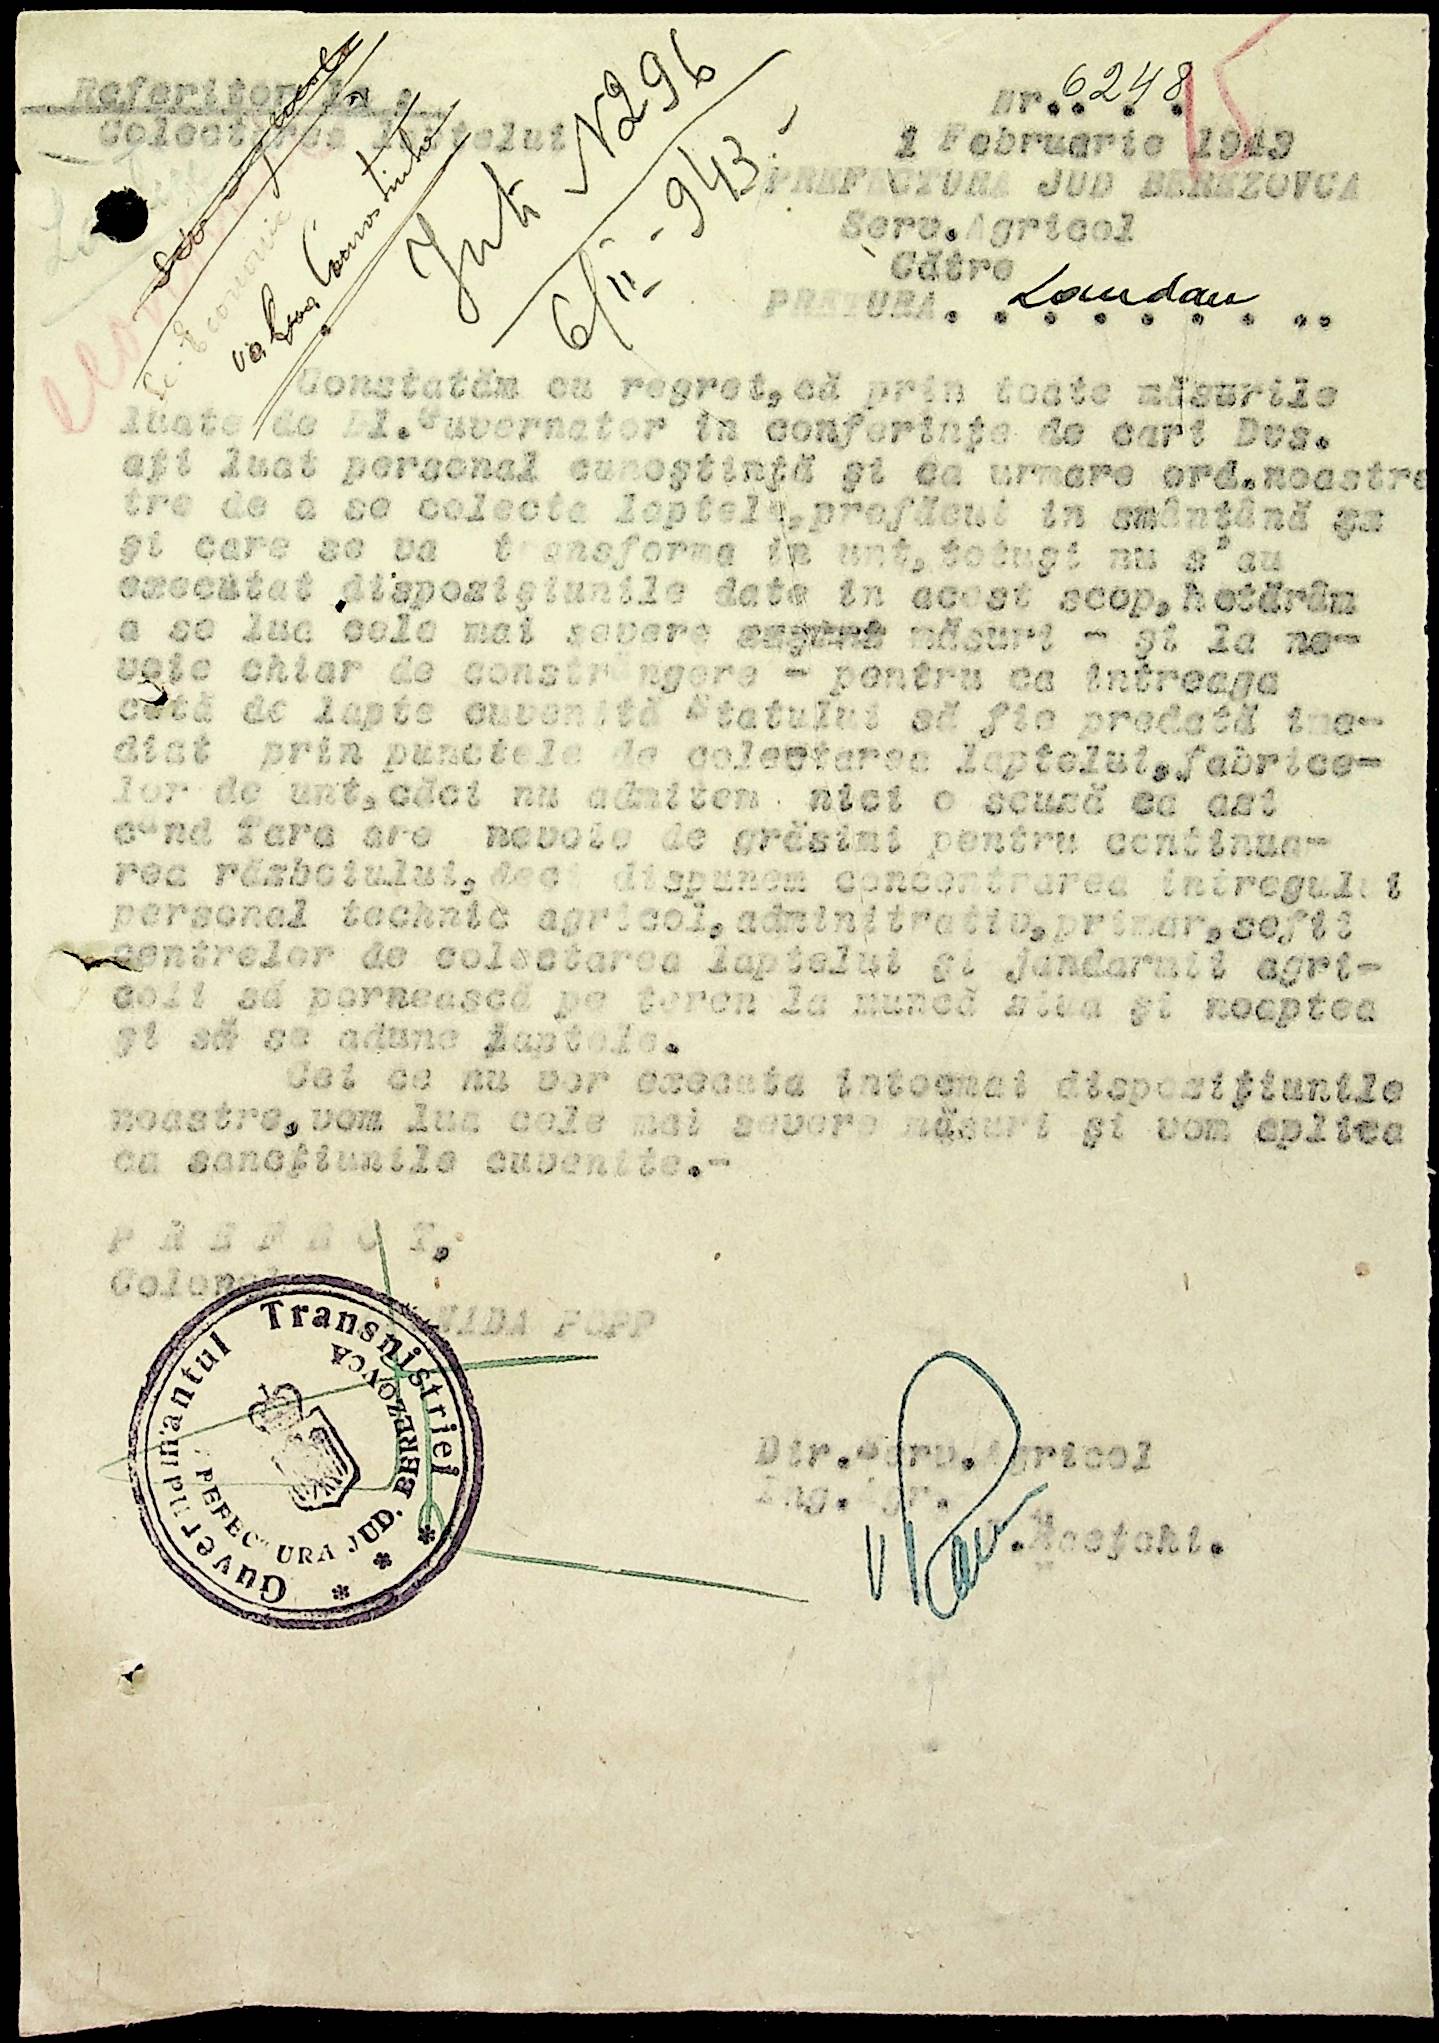 Referitor la :
Colectarea laptelui
Int. N 296
6/II - 943.
15
nr. 6248
1 Februarie 1943
PREFECTURA JUD BEREZOVCA
Serv.Agricol
Către
PRETURA. Landau
Constatăm cu regret,că prin toate măsurile
luate de Dl.Guvernator in conferinţe de cari Dvs.
aţi luat personal cunoştinţă şi ca urmare ord.noastre
tre de a se colecta laptele,prefăcut in smântână şx
şi care se va transforma in unt,totuşi nu s'au
executat dispoziţiunile date in acest scop,hotărâm
a se lua cele mai severe măsuri - şi la ne-
voie chiar de constrângere - pentru ca intreaga
cotă de lapte cuvenită Statului să fie predată ime-
diat prin punctele de colectarea laptelui,fabrice-
lor de unt,căci nu admitem nici o scuză ca azi
când Tara are nevoie de grăsimi pentru continua-
rea răsboiului,deci dispunem concentrarea intregului
personal technic agricol,adminitrativ,primar,sefii
centrelor de colectarea laptelui şi jandarmii agri-
coli să pornească pe teren la muncă ziua şi noaptea
şi să se adune laptele.
Cei ce nu vor executa intocmai dispoziţiunile
noastre,vom lua cele mai severe măsuri şi vom aplica
ca sancţiunile cuvenite.-
P R E F E C T,
Colonel
POPP
Guvernamantul Transnistriei
PEFECTURA JUD. BERPZOVCA
Dir.Serv.Agricol
Ing.Agr.